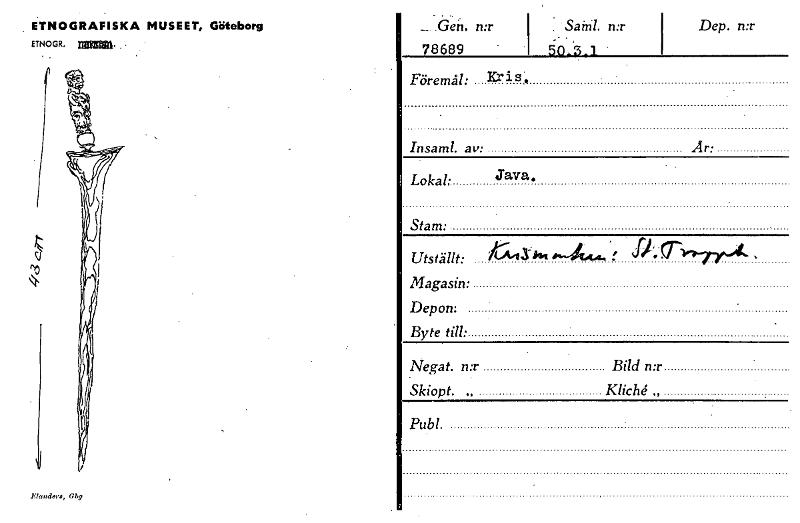 ETNOGRAFISKA MUSEET, Göteborg
ETNOGR.
43 cm
Elanders, Gbg
Gen. n:r Saml. n:r Dep. n:r
78689 50.3.1
Föremål: Kris.
Insaml. av: År:
Lokal: Java.
Stam:
Utställt: St.
Magasin:
Depon:
Byte till:
Negat. n:r Bild n:r
Skiopt. „ Kliché „
Publ.